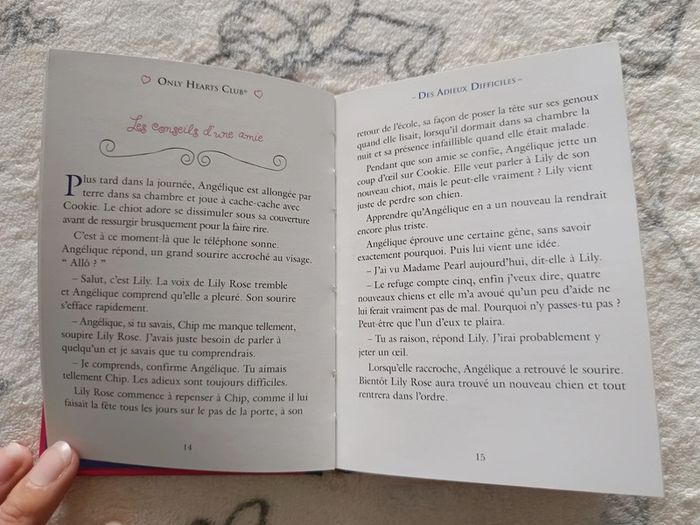 ONLY HEARTS CLUB®
Les conseils d'une amie
Plus tard dans la journée, Angélique est allongée par
terre dans sa chambre et joue à cache-cache avec
Cookie. Le chiot adore se dissimuler sous sa couverture
avant de ressurgir brusquement pour la faire rire.
C'est à ce moment-là que le téléphone sonne.
Angélique répond, un grand sourire accroché au visage.
“ Allô ? ”
– Salut, c'est Lily. La voix de Lily Rose tremble
et Angélique comprend qu'elle a pleuré. Son sourire
s'efface rapidement.
– Angélique, si tu savais, Chip me manque tellement,
soupire Lily Rose. J'avais juste besoin de parler à
quelqu'un et je savais que tu comprendrais.
– Je comprends, confirme Angélique. Tu aimais
tellement Chip. Les adieux sont toujours difficiles.
Lily Rose commence à repenser à Chip, comme il lui
faisait la fête tous les jours sur le pas de la porte, à son
14
– DES ADIEUX DIFFICILES –
retour de l'école, sa façon de poser la tête sur ses genoux
quand elle lisait, lorsqu'il dormait dans sa chambre la
nuit et sa présence infaillible quand elle était malade.
Pendant que son amie se confie, Angélique jette un
coup d'œil sur Cookie. Elle veut parler à Lily de son
nouveau chiot, mais le peut-elle vraiment ? Lily vient
juste de perdre son chien.
Apprendre qu'Angélique en a un nouveau la rendrait
encore plus triste.
Angélique éprouve une certaine gêne, sans savoir
exactement pourquoi. Puis lui vient une idée.
– J'ai vu Madame Pearl aujourd'hui, dit-elle à Lily.
– Le refuge compte cinq, enfin j'veux dire, quatre
nouveaux chiens et elle m'a avoué qu'un peu d'aide ne
lui ferait vraiment pas de mal. Pourquoi n'y passes-tu pas ?
Peut-être que l'un d'eux te plaira.
– Tu as raison, répond Lily. J'irai probablement y
jeter un œil.
Lorsqu'elle raccroche, Angélique a retrouvé le sourire.
Bientôt Lily Rose aura trouvé un nouveau chien et tout
rentrera dans l'ordre.
15